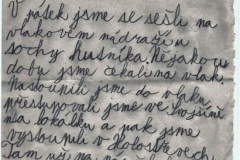 V pátek jsme se sešli na
vlakovém nádraží u
sochy husníka. Nějakou
dobu jsme čekali na vlak.
Nastoupili jsme do vlaku,
přestupovali jsme ve
na lokálku a pak jsme
vystoupili v
Tam už na